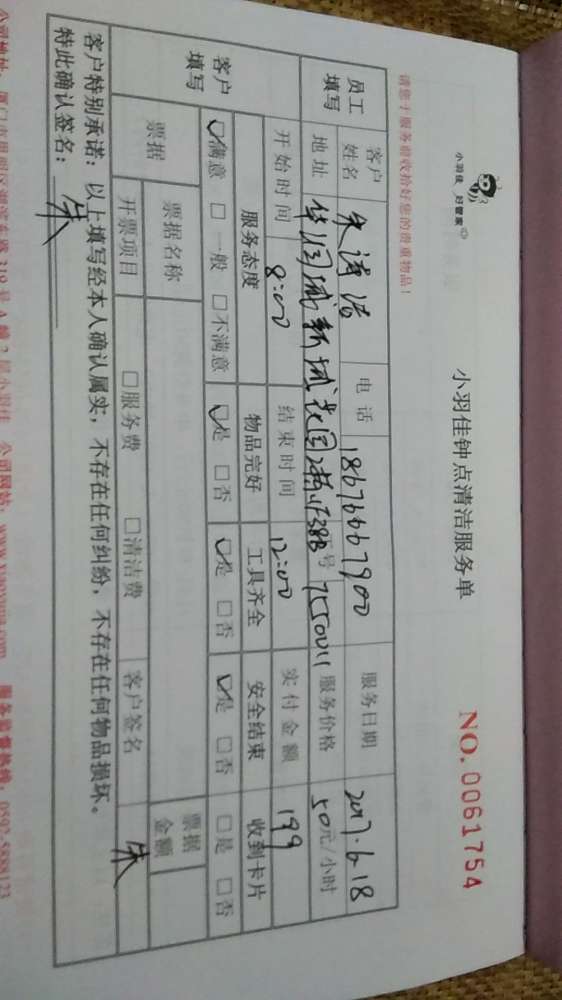 小羽佳 好管家
小羽佳钟点清洁服务单
NO.0061754
请您于服务前收拾好您的贵重物品！
员工填写
客户姓名 朱 洁 电话 18676667900 服务日期 2017.6.18
地址 新城花园 号 7550011 服务价格 50元/小时
开始时间 8:00 结束时间 12:00 实付金额 199
客户填写
服务态度 物品完好 工具齐全 安全结束 收到卡片
☑满意 □一般 □不满意 ☑是 □否 ☑是 □否 ☑是 □否 □是 □否
票据 票据名称 票据金额
开票项目 □服务费 □清洁费 客户签名 朱
客户特别承诺：以上填写经本人确认属实，不存在任何纠纷，不存在任何物品损坏。
特此确认签名：朱
319号4幢2层小羽佳 公司网站：www.xiaoyujia.com 服务监督热线：0592-5888123